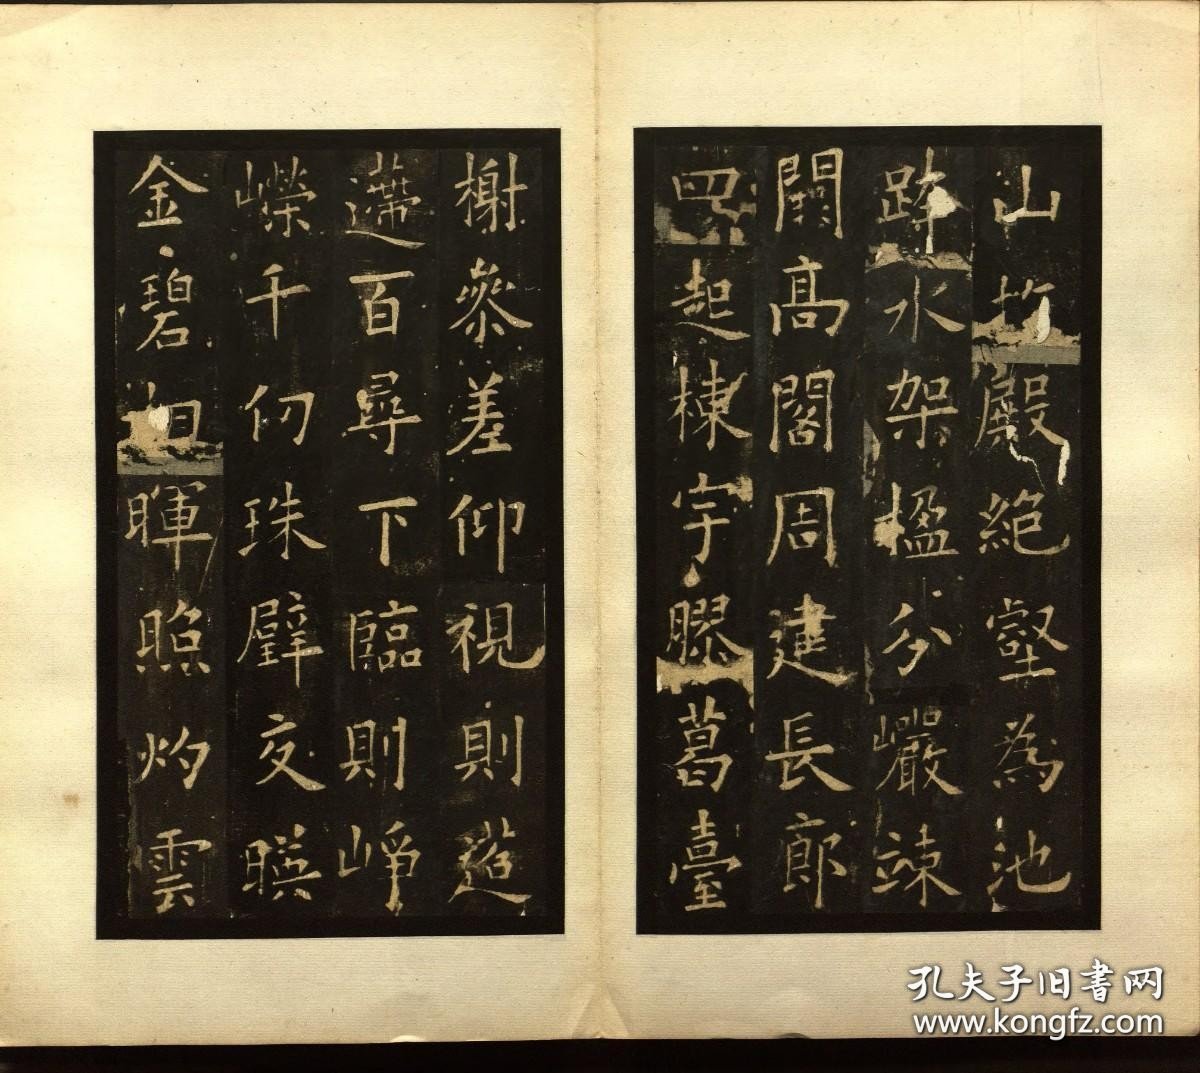 山抗殿絶壑為池
跨水架楹分巖竦
闕髙閣周建長廊
四起棟宇膠葛臺
榭參差仰視則迢
遰百尋下臨則崢
嶸千仞珠璧交暎
金碧相暉照灼雲
孔夫子旧書网
www.kongfz.com